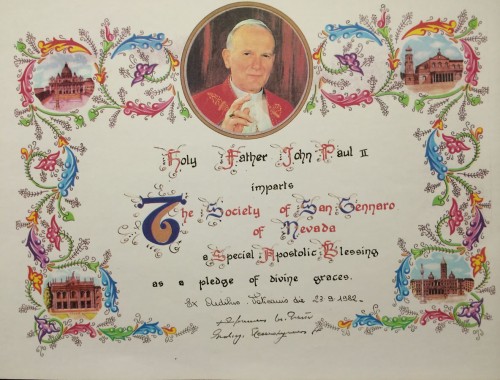 Holy Father John Paul II
imparts
The Society of San Gennaro
of Nevada
a Special Apostolic Blessing
as a pledge of divine graces.
Ex Aedibus Vaticanis die 27-9-1982